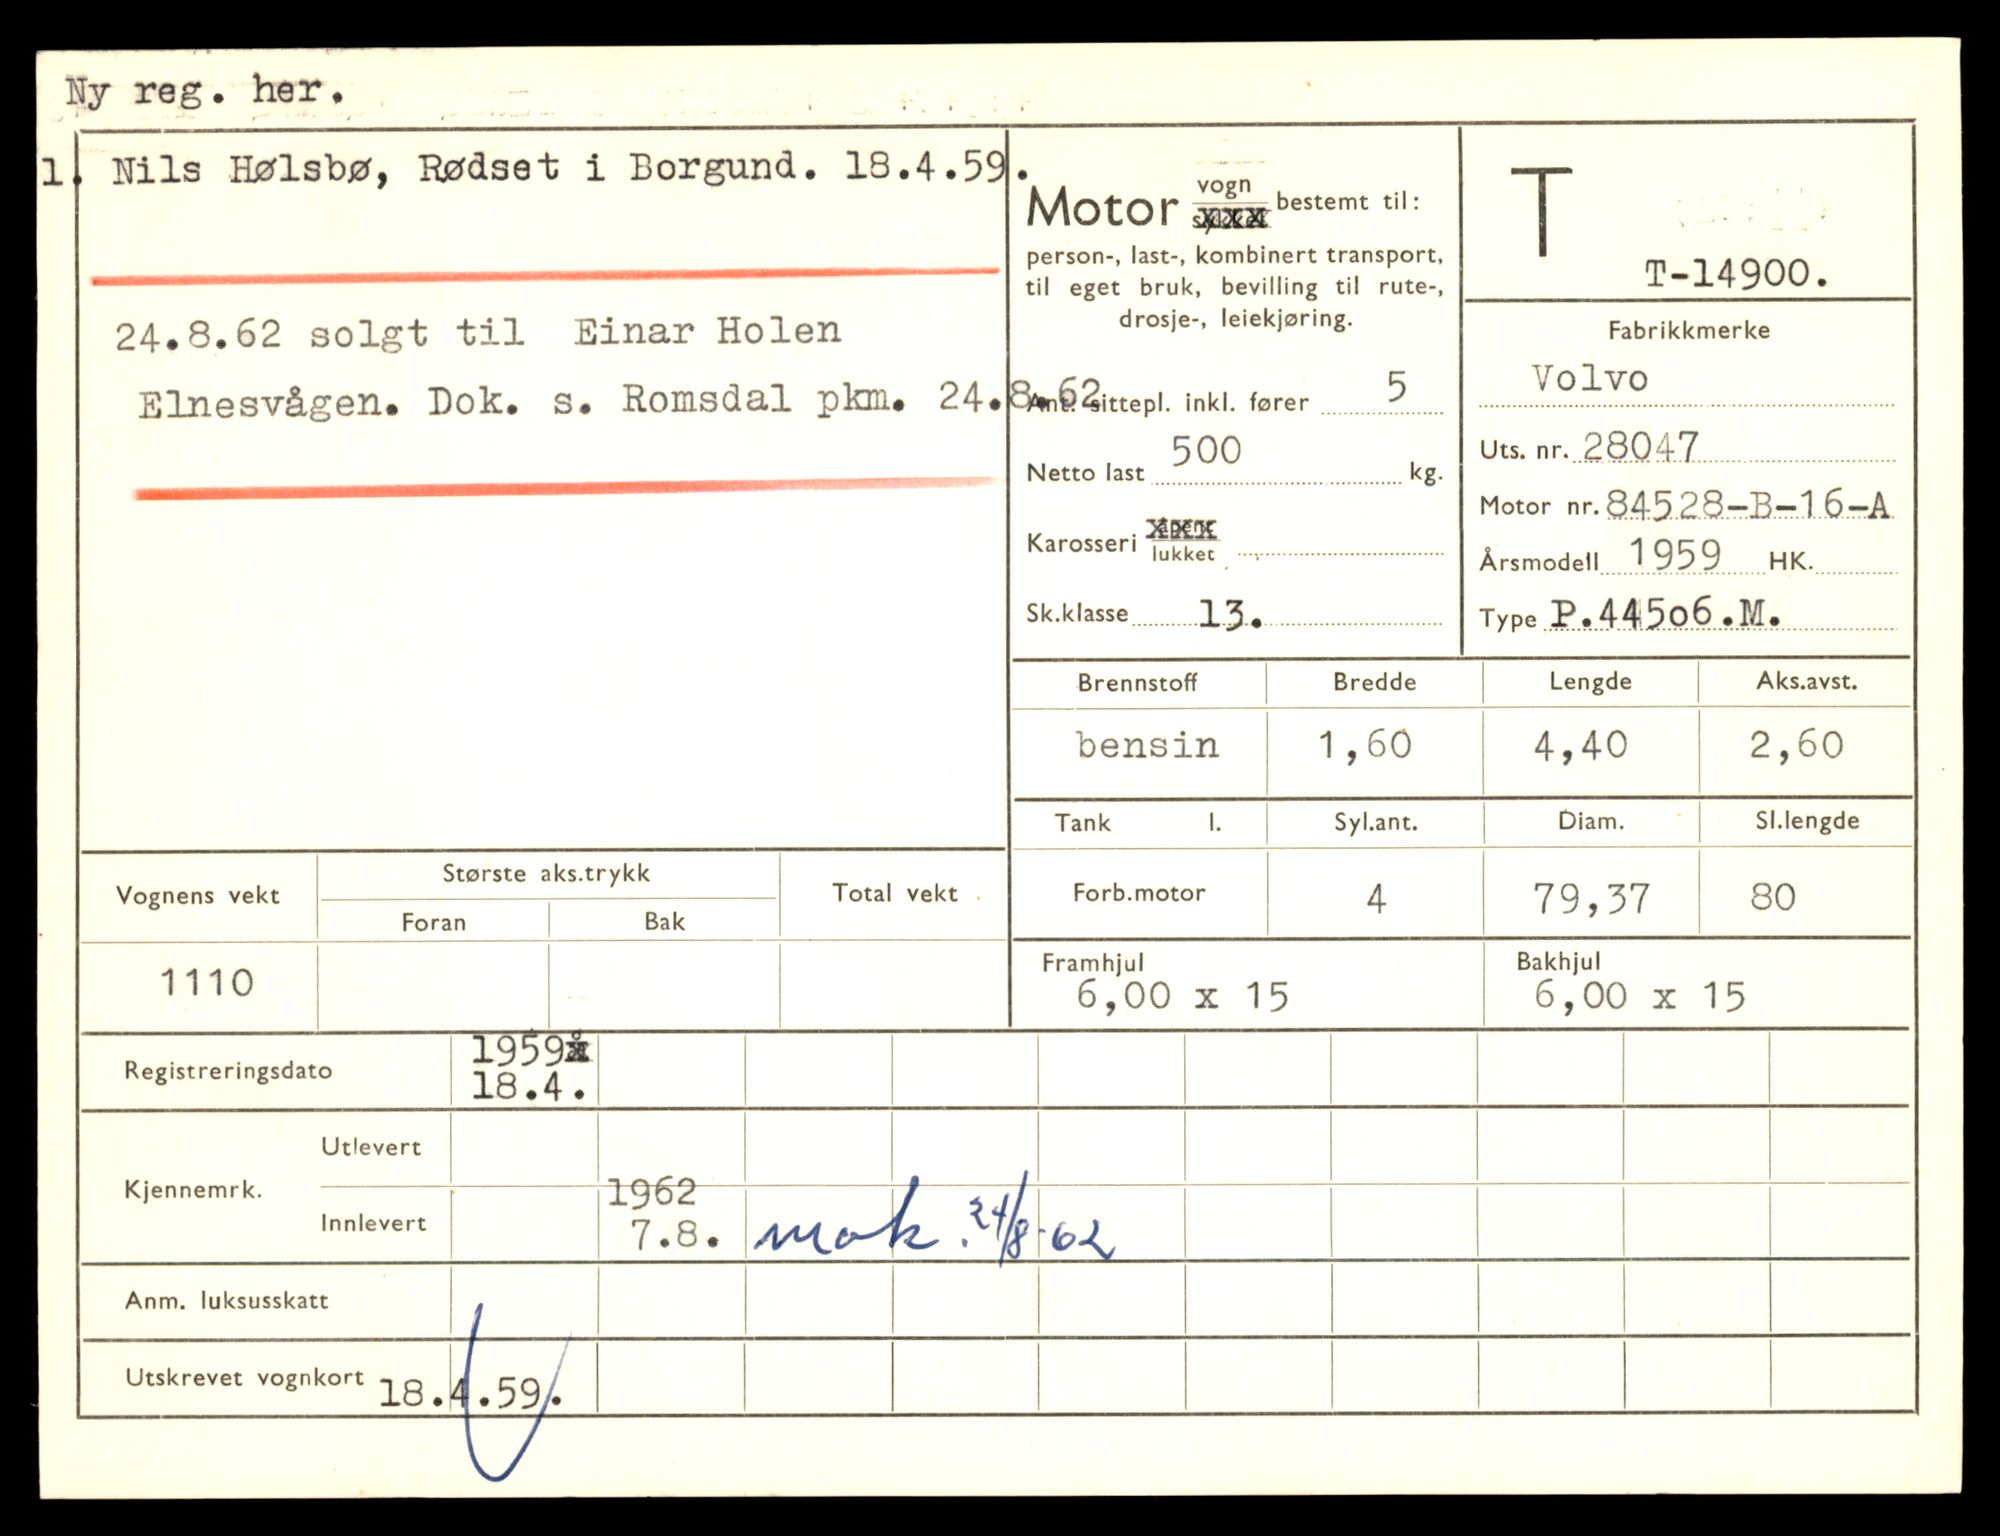 Ny reg. her.
1. Nils Hølsbø, Rødset i Borgund. 18.4.59.
24.8.62 solgt til Einar Holen
Elnesvågen. Dok. s. Romsdal pkm. 24.8.62
Motor vogn bestemt til:
sykkel
person-, last-, kombinert transport,
til eget bruk, bevilling til rute-,
drosje-, leiekjøring.
Ant. sittepl. inkl. fører 5
Netto last 500 kg.
Karosseri åpent
lukket
Sk.klasse 13.
T
T-14900.
Fabrikkmerke
Volvo
Uts. nr. 28047
Motor nr. 84528-B-16-A
Årsmodell 1959 HK.
Type P.445o6.M.
Brennstoff Bredde Lengde Aks.avst.
bensin 1,60 4,40 2,60
Tank l. Syl.ant. Diam. Sl.lengde
Forb.motor 4 79,37 80
Framhjul Bakhjul
6,00 x 15 6,00 x 15
Vognens vekt Største aks.trykk Total vekt
Foran Bak
1110
Registreringsdato 1959
18.4.
Kjennemrk. Utlevert
Innlevert 1962
7.8. mak. 24/8-62
Anm. luksusskatt
Utskrevet vognkort 18.4.59.